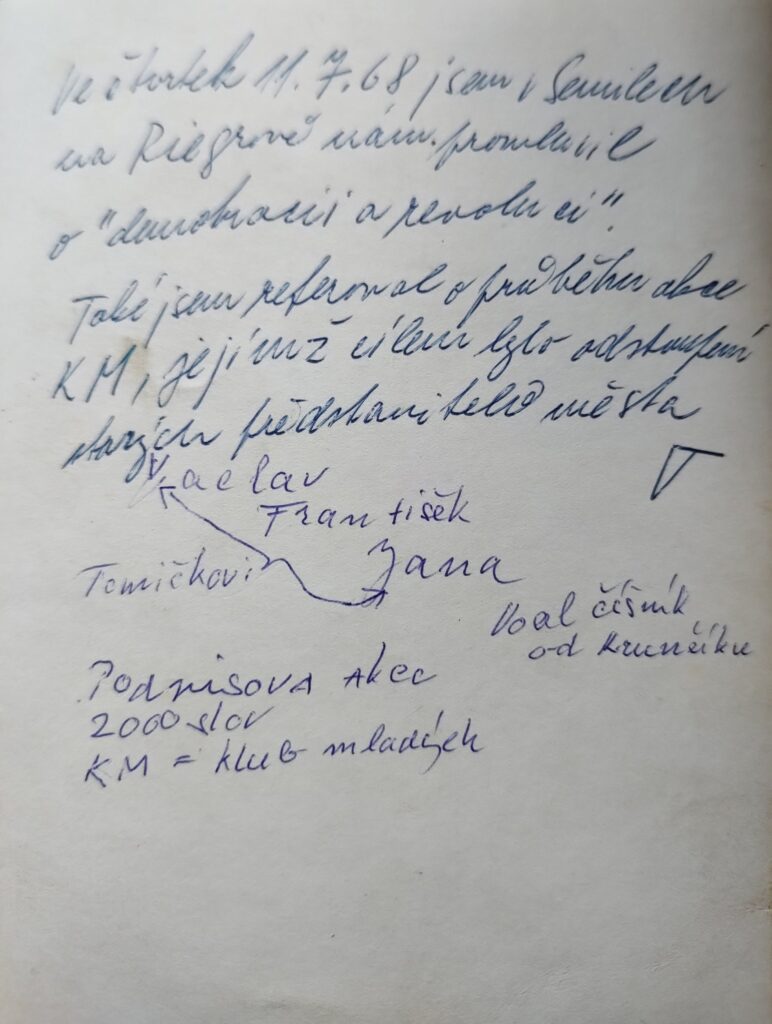 Ve čtvrtek 11.7.68 jsem v Semilech
na Riegrově nám. promluvil
o "demokracii a revoluci".
Také jsem referoval o průběhu akce
KM, jejímž cílem bylo odstoupení
starých představitelů města
Václav
František
Jana
Tomíčkovi
číšník
od
Podpisova akce
2000 slov
KM = klub mladých